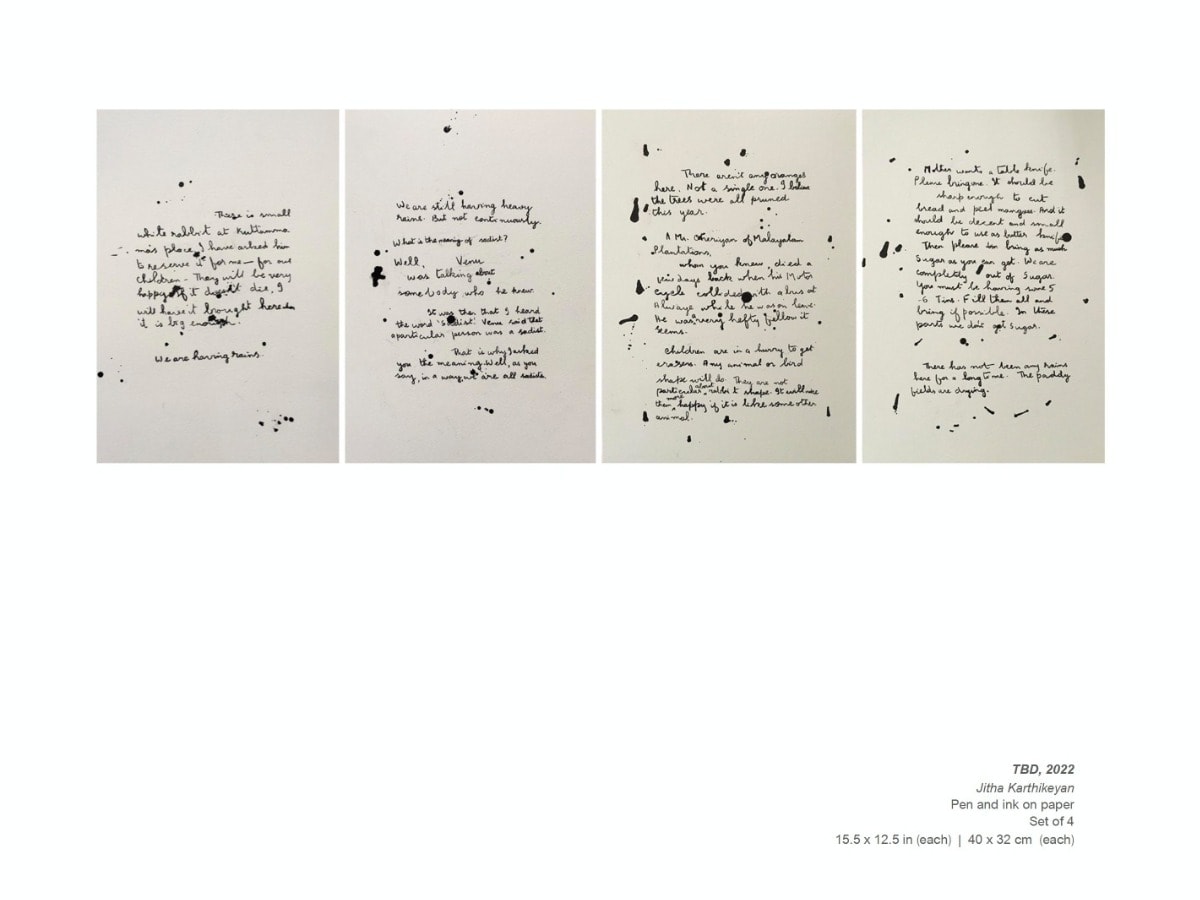 There is small
white rabbit at Kuttiamma
ma's place, I have asked him
to reserve it for me — for our
children. They will be very
happy if it doesn't die, I
will have it brought here
it is big enough.
We are having rains.
We are still having heavy
rains. But not continuously.
What is the meaning of sadist?
Well, Venu
was talking about
somebody who he knew.
It was then that I heard
the word 'Sadist'. Venu said that
a particular person was a sadist.
That is why I asked
you the meaning. Well, as you
say, in a way, we are all sadists
There aren't any oranges
here. Not a single one. I believe
the trees were all pruned
this year.
A Mr. Cheriyan of Malayalam
Plantations,
whom you knew, died a
few days back when his Motor
cycle collided with a bus at
Alwaye while he was on leave.
He was very hefty fellow it
seems.
Children are in a hurry to get
erasers. Any animal or bird
shape will do. They are not
particular about rabbit shape. It will make
them more happy if it is like some other
animal.
Mother wants a table knife.
Please bring one. It should be
sharp enough to cut
bread and peel mangoes. And it
should be decent and small
enough to use as butter knife
Then please bring as much
Sugar as you can get. We are
completely out of Sugar.
You must be having some 5
-6 Tins. Fill them all and
bring if possible. In these
parts we don't get sugar.
There has not been any rains
here for a long time. The paddy
fields are drying.
TBD, 2022
Jitha Karthikeyan
Pen and ink on paper
Set of 4
15.5 x 12.5 in (each) | 40 x 32 cm (each)